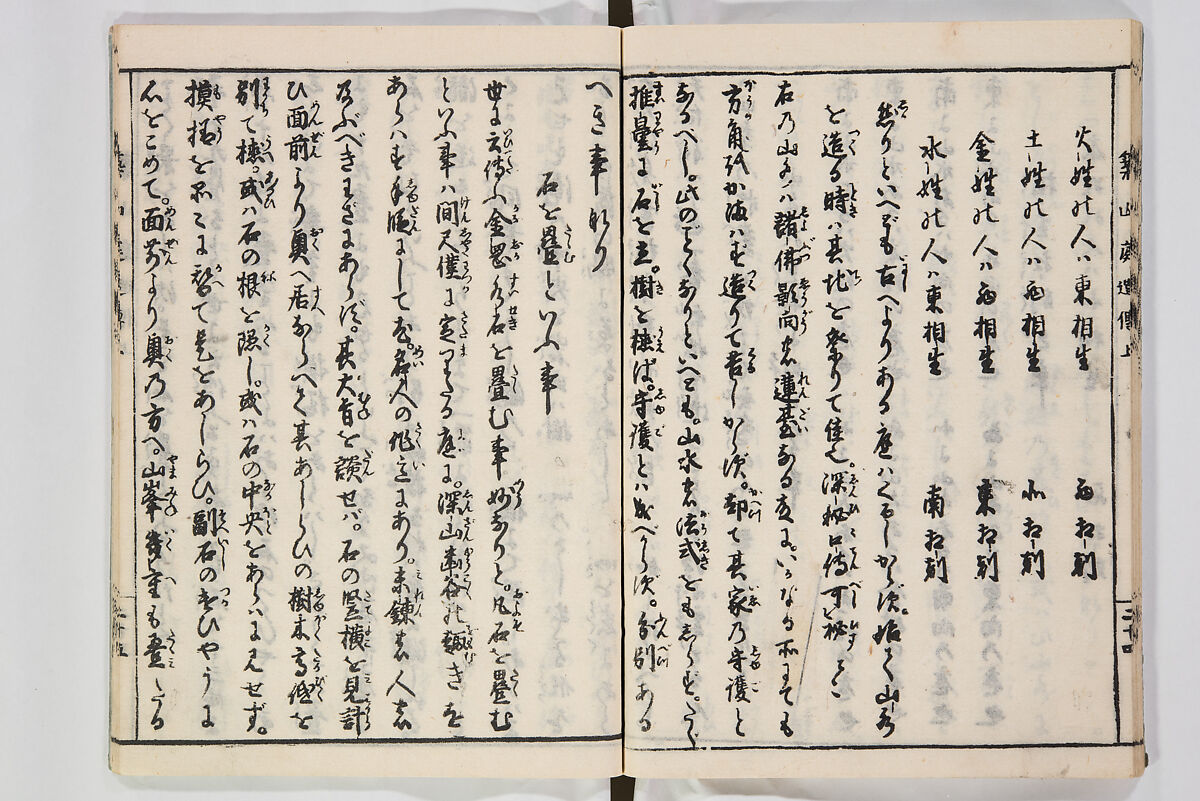 築山庭造傳上
火姓の人ハ東相生 西相剋
土姓の人ハ西相生 北相剋
金姓の人ハ西相生 東相剋
水姓の人ハ東相生 南相剋
然りといへども古へよりある庭ハくるしからず。始て山水
を造る時ハ其地を祭りて佳也。深秘口傳可秘々々
右乃山水ハ諸佛影向の蓮臺なる故に。いかなる所にても
方角ハかまはず造りて苦しからず。却て其家乃守護と
なるべし。此のごとくなりといへとも。山水の法式をもしらず。たゞ
推量に石を立。樹を植ば。守護とハ成べからず。分別ある
二十四
べき事なり
石を疊といふ事
世に云傳ふ金閣の石を疊む事妙なりと。凡石を疊む
といふ事ハ間尺僕に定りたる庭に。深山幽谷の趣きを
あらハす手段にして。名人の作意にあり。未錬の人の
及ぶべきわざにあらず。其大旨を談せバ。石の竪横を見計
ひ面前より奥へ居ならべて其あしらひの樹木高低を
別て植。或ハ石の根を隠し。或ハ石の中央をあらハに見せず。
摸様を所々に替て是をあしらひ。副石のつひやうに
心をこめて。面前より奥乃方へ。山峯幾重も疊たる